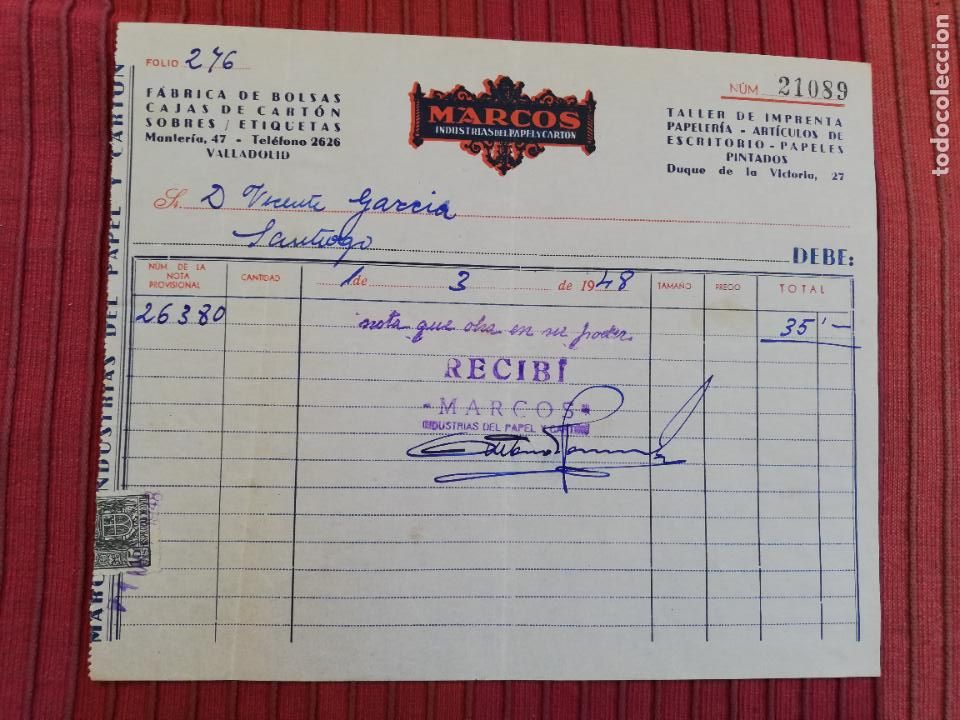 FOLIO 276
FÁBRICA DE BOLSAS
CAJAS DE CARTÓN
SOBRES / ETIQUETAS
Mantería, 47 - Teléfono 2626
VALLADOLID
MARCOS
INDUSTRIAS DEL PAPEL Y CARTON
NÚM. 21089
TALLER DE IMPRENTA
PAPELERÍA - ARTÍCULOS DE
ESCRITORIO - PAPELES
PINTADOS
Duque de la Victoria, 27
Sr. D Vicente Garcia
Santiago
DEBE:
NÚM. DE LA NOTA PROVISIONAL CANTIDAD 1 de 3 de 1948 TAMAÑO PRECIO TOTAL
26380 nota que obra en su poder. 35'—
RECIBÍ
MARCOS
INDUSTRIAS DEL PAPEL Y CARTON
MARCOS INDUSTRIAS DEL PAPEL Y CARTÓN
todocoleccion